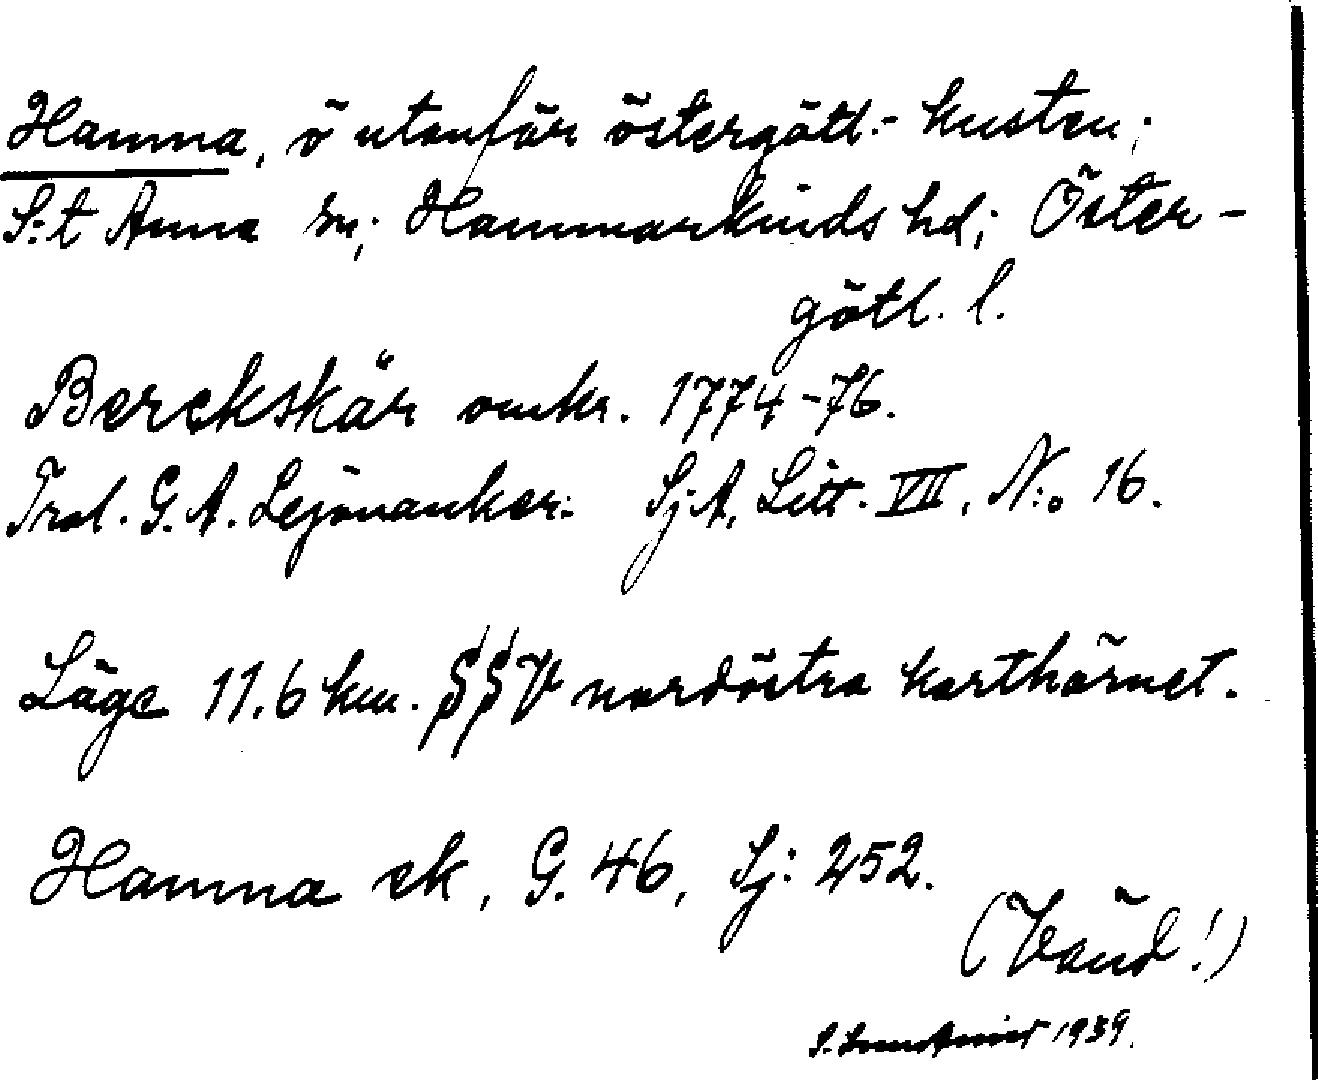 Hamna, ö utanför östergötl.- kusten;
S:t Anna sn; Hammarkinds hd; Öster-
götl. l.
Berckskär omkr. 1774-76.
Trol. G. A. Lejonanker: SjA, Litt. VII, N:o 16.
Läge 11.6 km. SSV nordöstra karthörnet.
Hamna ek, G. 46, Sj: 252.
(Vänd!)
1939.